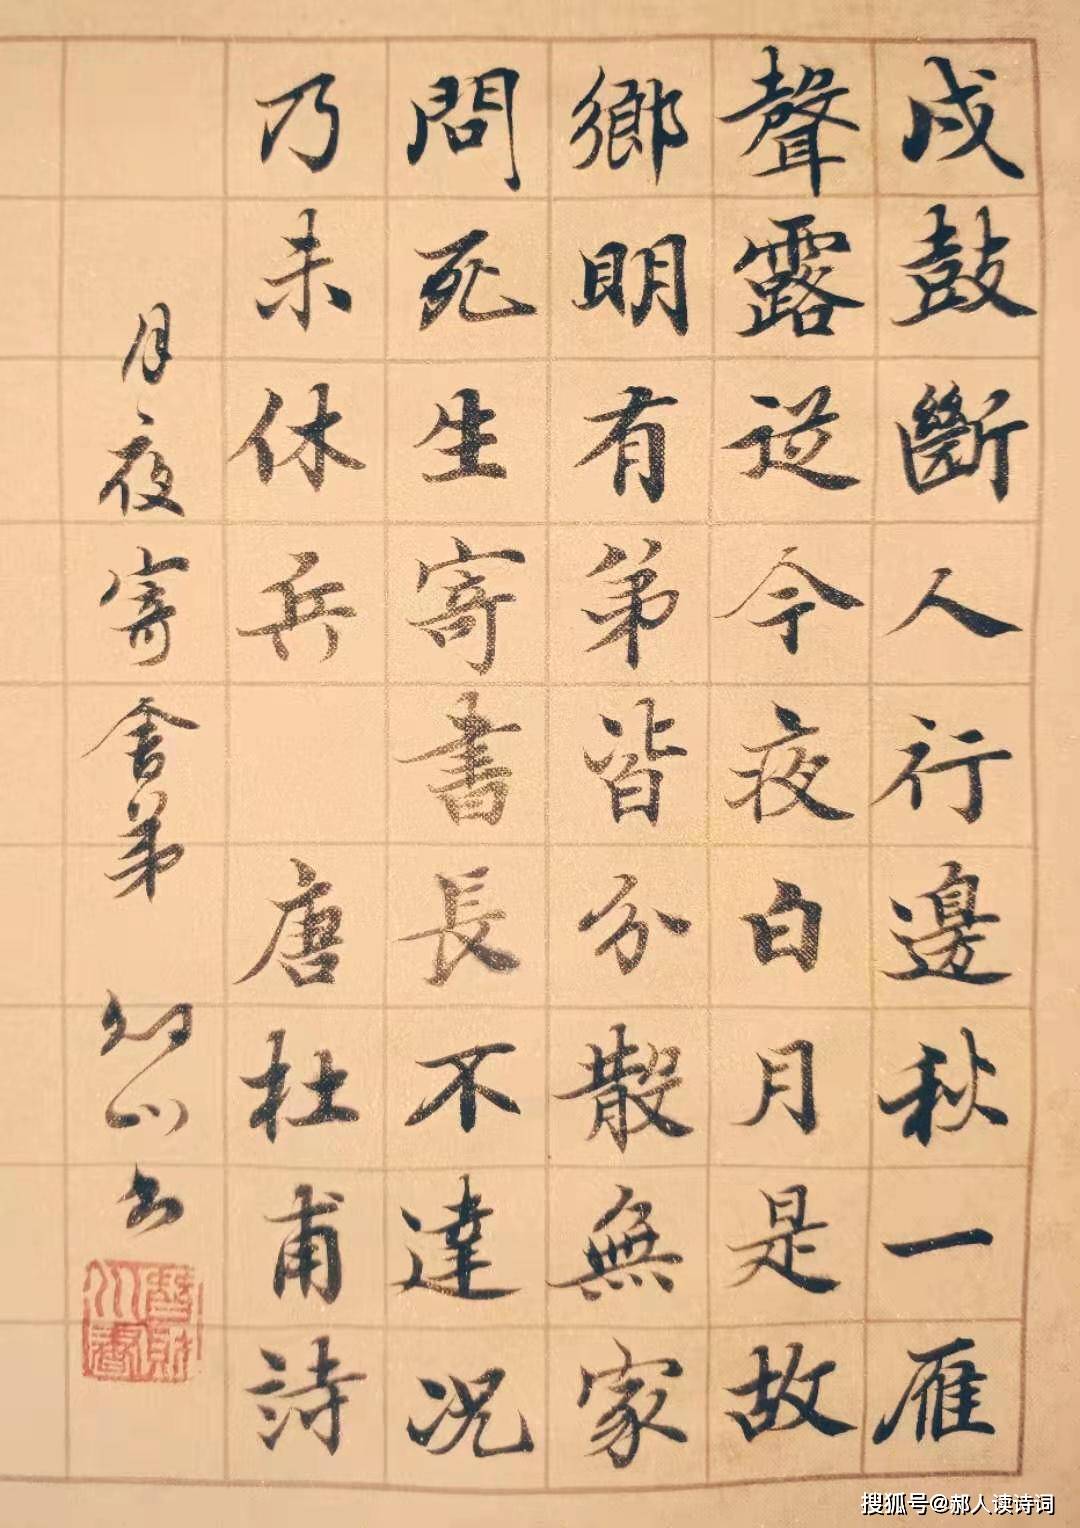 戍鼓斷人行邊秋一雁
聲露從今夜白月是故
鄉明有弟皆分散無家
問死生寄書長不達况
乃未休兵 唐杜甫詩
月夜寄舍弟 书
搜狐号@郝人读诗词